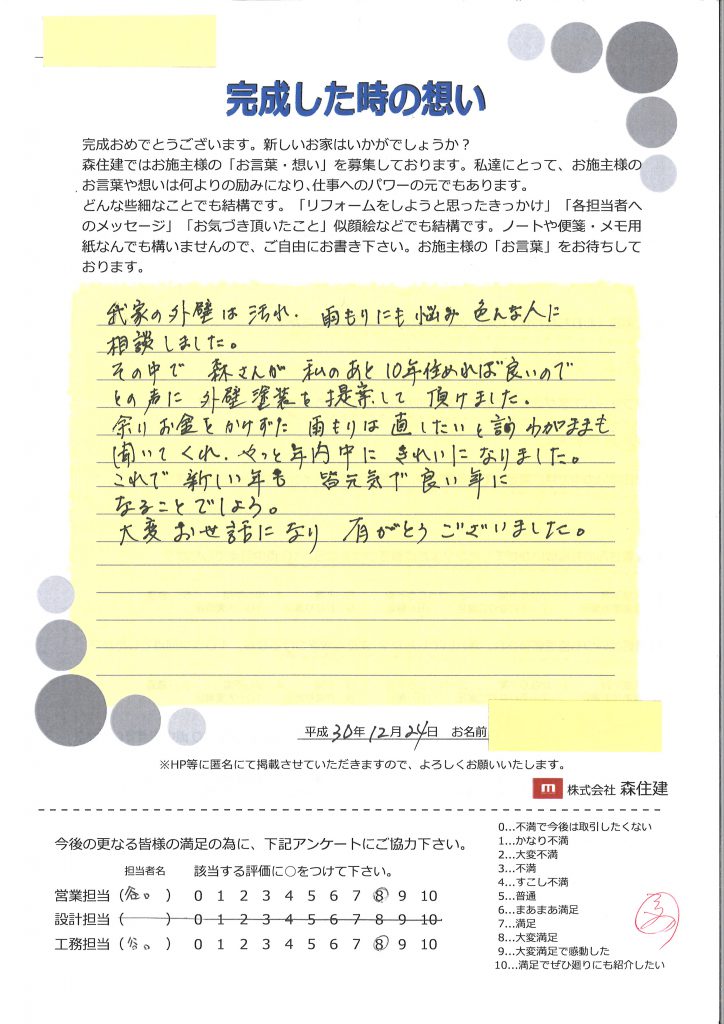 完成した時の想い
完成おめでとうございます。新しいお家はいかがでしょうか？
森住建ではお施主様の「お言葉・想い」を募集しております。私達にとって、お施主様の
お言葉や想いは何よりの励みになり、仕事へのパワーの元でもあります。
どんな些細なことでも結構です。「リフォームをしようと思ったきっかけ」「各担当者へ
のメッセージ」「お気づき頂いたこと」似顔絵などでも結構です。ノートや便箋・メモ用
紙なんでも構いませんので、ご自由にお書き下さい。お施主様の「お言葉」をお待ちして
おります。
我家の外壁は汚れ. 雨もりにも悩み 色んな人に
相談しました。
その中で 森さんが 私のあと10年住めれば良いので
との声に 外壁塗装を提案して 頂けました。
余りお金をかけずに 雨もりは直したいと言うわがままも
聞いてくれ. やっと年内中に きれいになりました。
これで 新しい年も 皆元気で良い年に
なることでしょう。
大変お世話になり 有がとうございました。
平成30年12月24日 お名前
※HP等に匿名にて掲載させていただきますので、よろしくお願いいたします。
m 株式会社 森住建
今後の更なる皆様の満足の為に、下記アンケートにご協力下さい。
担当者名 該当する評価に○をつけて下さい。
営業担当（谷口）0 1 2 3 4 5 6 7 8 9 10
設計担当（ ）0 1 2 3 4 5 6 7 8 9 10
工務担当（谷口）0 1 2 3 4 5 6 7 8 9 10
0…不満で今後は取引したくない
1…かなり不満
2…大変不満
3…不満
4…すこし不満
5…普通
6…まあまあ満足
7…満足
8…大変満足
9…大変満足で感動した
10…満足でぜひ廻りにも紹介したい